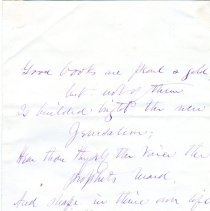 Good books are pearl & gold
but not of them
Is builded bright the new
Jerusalem;
Hear thou thyself the voice the
prophets heard,
And shape in thine own life